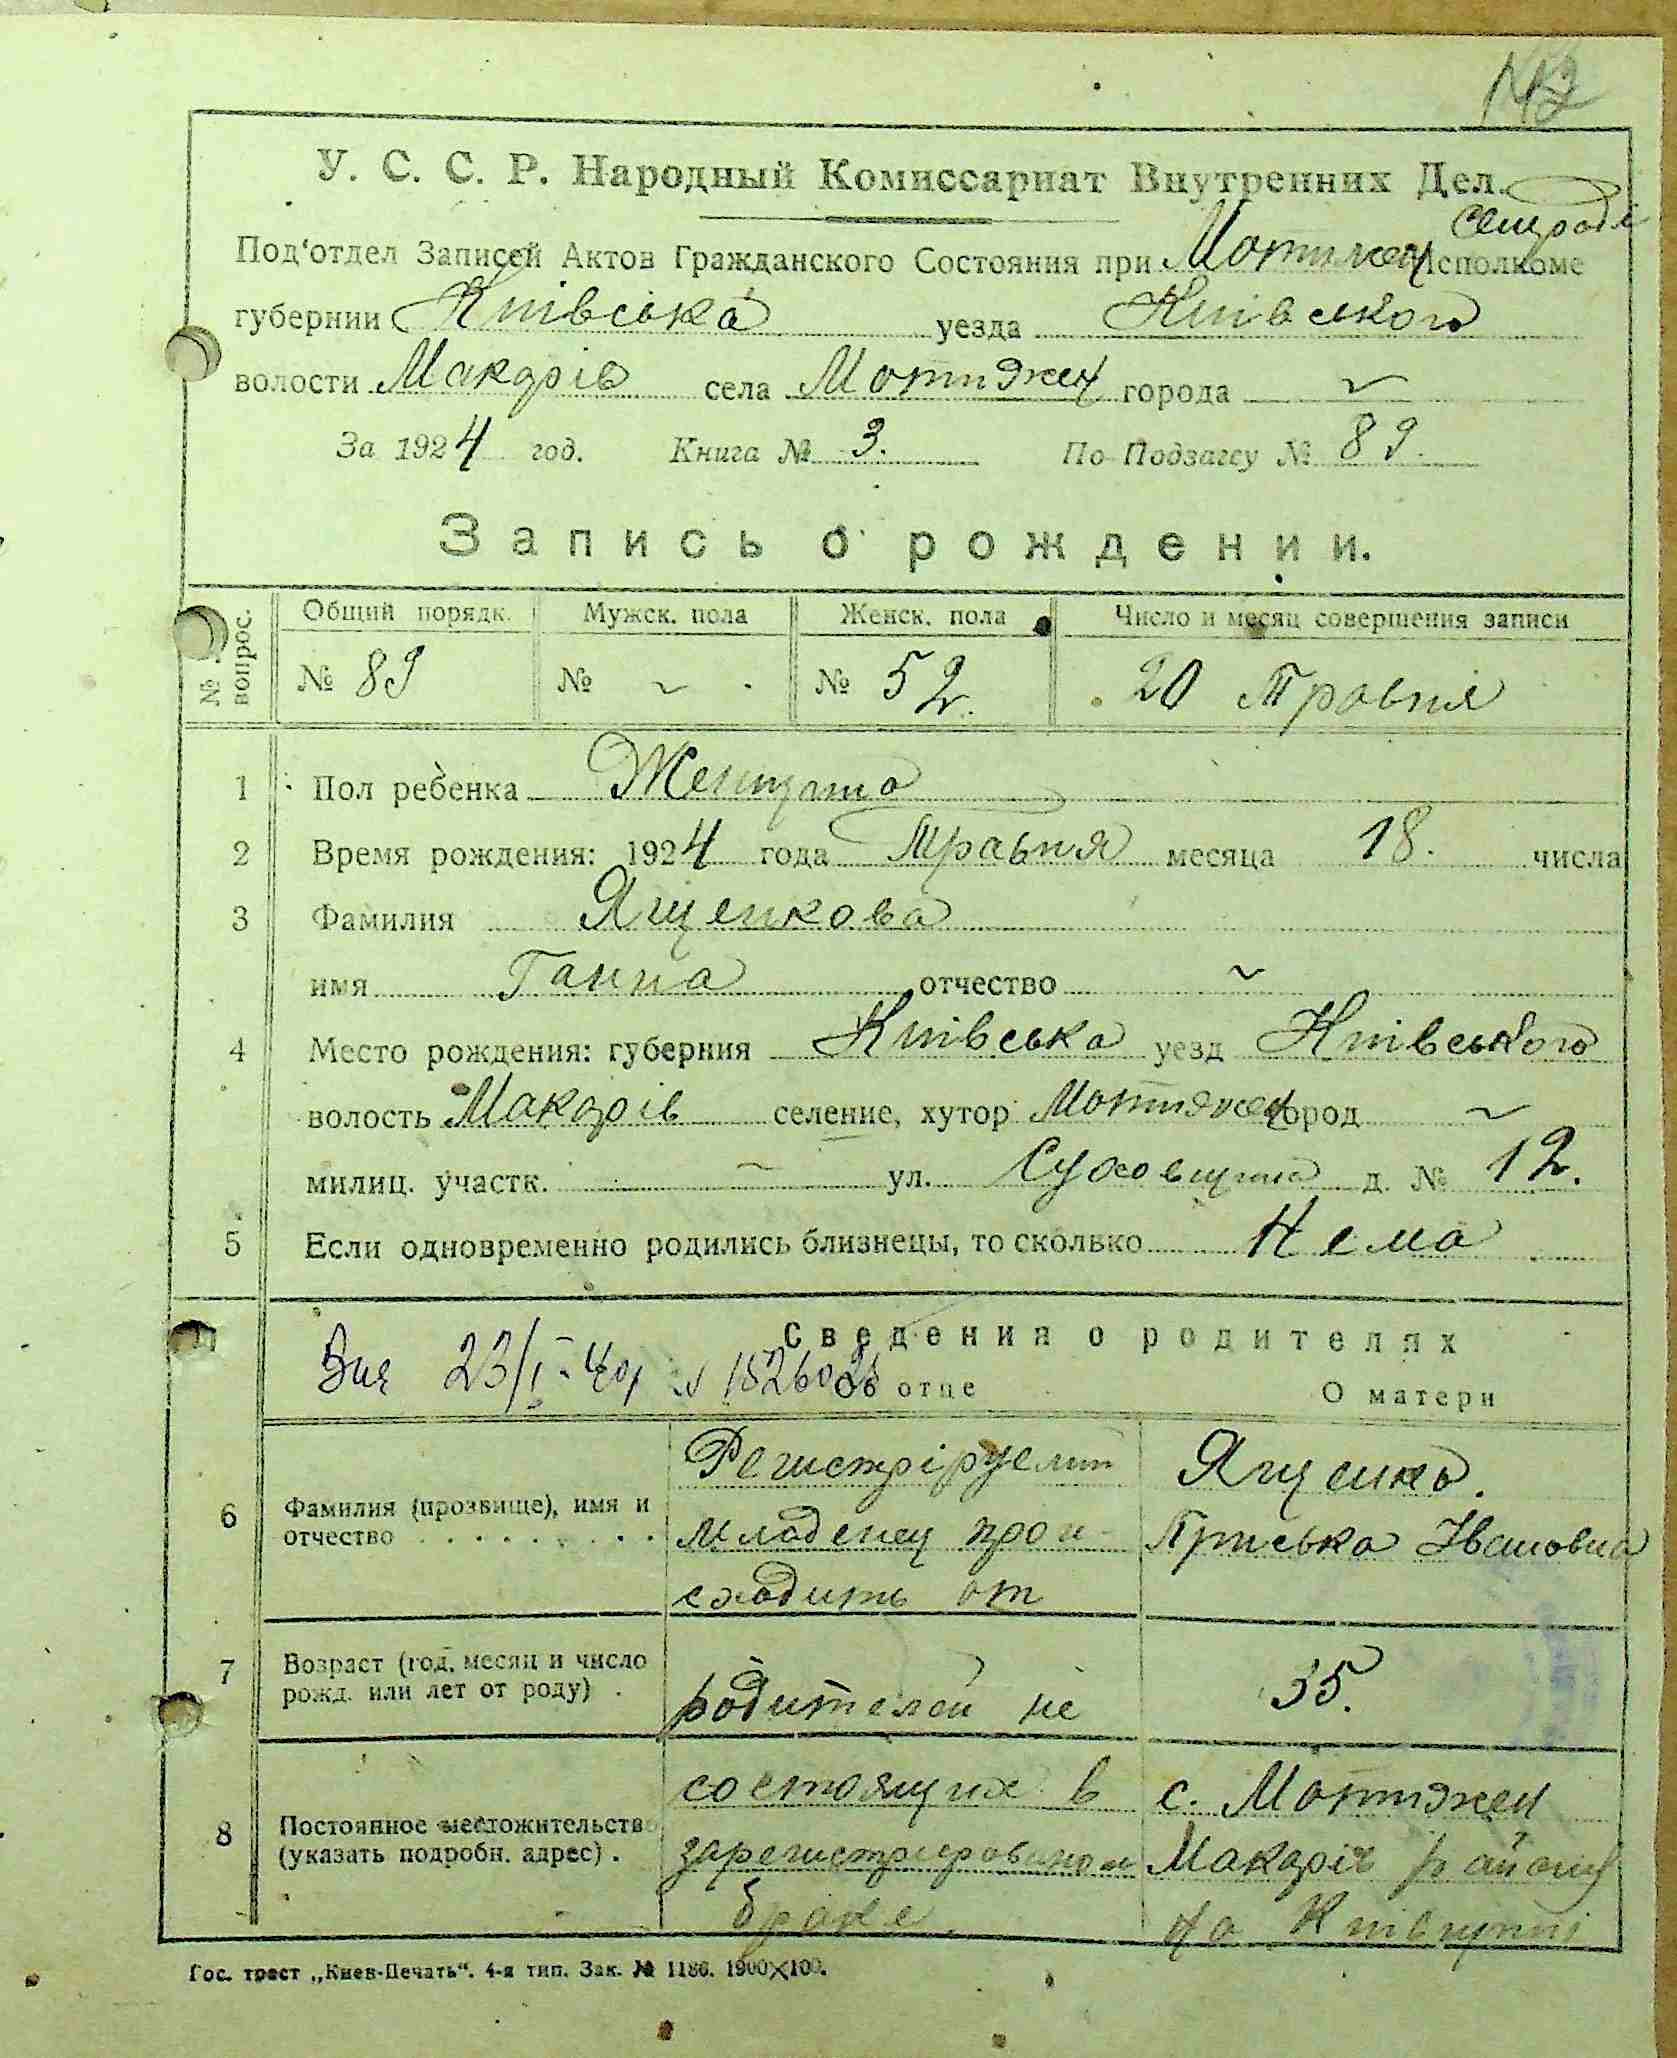 142
У. С. С. Р. Народный Комиссариат Внутренних Дел.
Сельраді
Под‘отдел Записей Актов Гражданского Состояния при Мотижен Исполкоме
губернии Київська уезда Київського
волости Макарів села Мотижен города ~
За 1924 год. Книга № 3. По Подзагсу № 89.
Запись о рождении.
№ вопрос. Общий порядк. Мужск. пола Женск. пола Число и месяц совершения записи
№ 89 № ~ № 52. 20 Травня
1 Пол ребенка
2 Время рождения: 1924 года Травня месяца 18. числа
3 Фамилия Ященкова
имя Ганна отчество ~
4 Место рождения: губерния Київська уезд Київського
волость Макарів селение, хутор Мотижен город ~
милиц. участк. ~ ул. д. № 12.
5 Если одновременно родились близнецы, то сколько Нема
Сведения о родителях
23/I-40 1826028
Об отце О матери
6 Фамилия (прозвище), имя и отчество
Регистріруемий
младенец прои-
сходить от
Ященко.
Приська Івановна
7 Возраст (год, месяц и число рожд. или лет от роду) .
родителей не
35.
8 Постоянное местожительство (указать подробн. адрес) .
состоящих в
зарегистрированом
браке.
с. Мотижен
Макарів району
на Київщині
Гос. трест „Киев-Печать“. 4-я тип. Зак. № 1186. 1900×100.